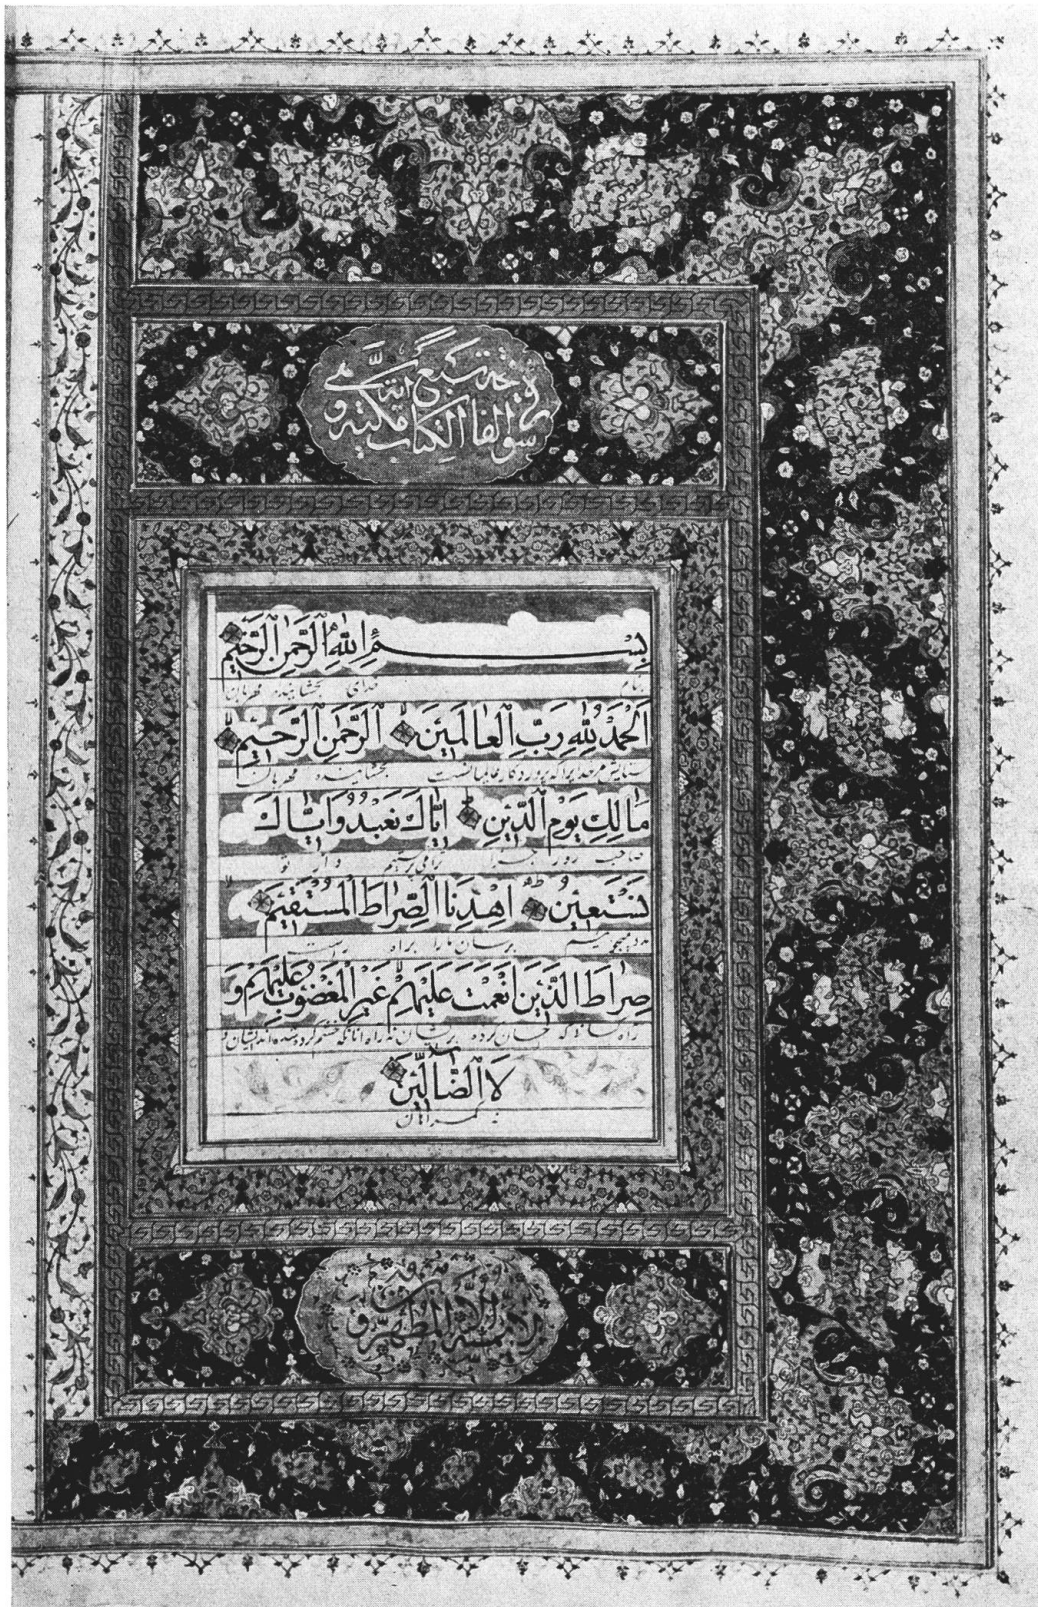 سورة فاتحة الكتاب مكية و
سبع آيات
بِسْمِ اللّٰهِ الرَّحْمٰنِ الرَّحِيْمِ
بنام خدای بخشاینده مهربان
اَلْحَمْدُ لِلّٰهِ رَبِّ الْعَالَمِيْنَ الرَّحْمٰنِ الرَّحِيْمِ
ستایش مر خدایرا که پروردگار عالمیانست بخشاینده مهربان
مَالِكِ يَوْمِ الدِّيْنِ اِيَّاكَ نَعْبُدُ وَاِيَّاكَ
صاحب روز جزا ترا می پرستیم و از تو
نَسْتَعِيْنُ اِهْدِنَا الصِّرَاطَ الْمُسْتَقِيْمَ
مدد میجوییم برسان ما را براه راست
صِرَاطَ الَّذِيْنَ اَنْعَمْتَ عَلَيْهِمْ غَيْرِ الْمَغْضُوْبِ عَلَيْهِمْ وَ
راه کسانیکه احسان کرده بر ایشان نه راه آنانکه خشم کرده شده اند ایشان و
لَا الضَّالِّيْنَ
نه گمراهان
لا يمسه الا المطهرون